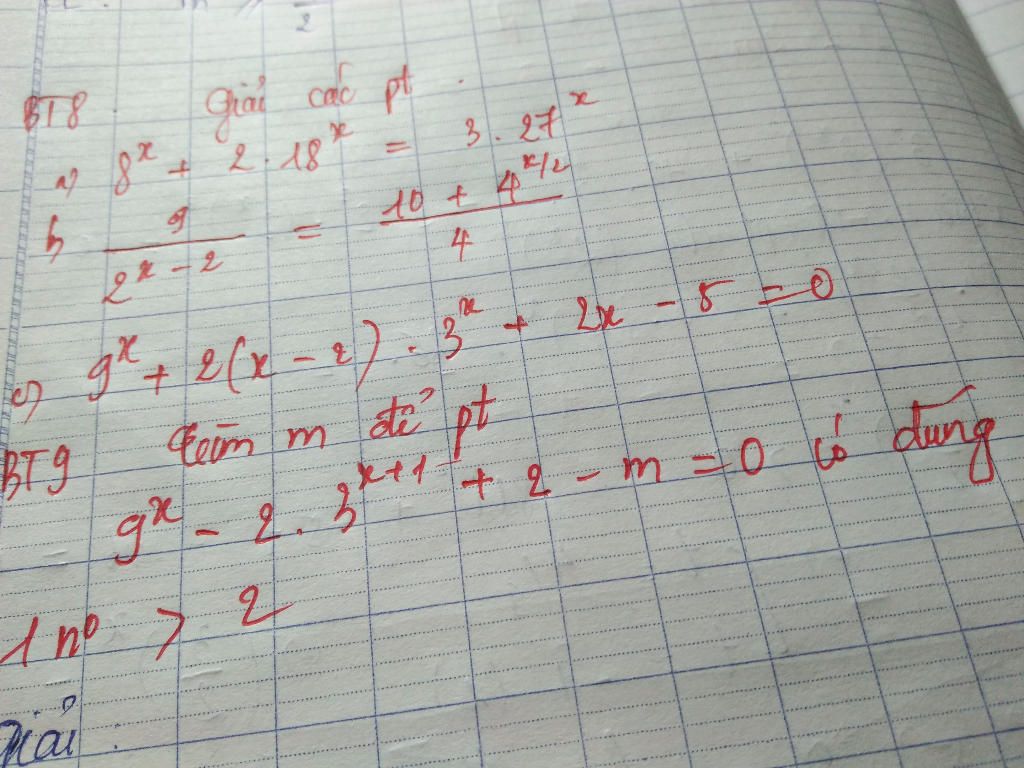 2
BT8. Giải các pt.
a) 8^x + 2.18^x = 3.27^x
b) 9/(2^x - 2) = (10 + 4^(x/2))/4
c) 9^x + 2(x - 2).3^x + 2x - 5 = 0
BT9 tìm m để pt
9^x - 2.3^(x+1) + 2 - m = 0 có đúng
1 n° > 2
Giải: